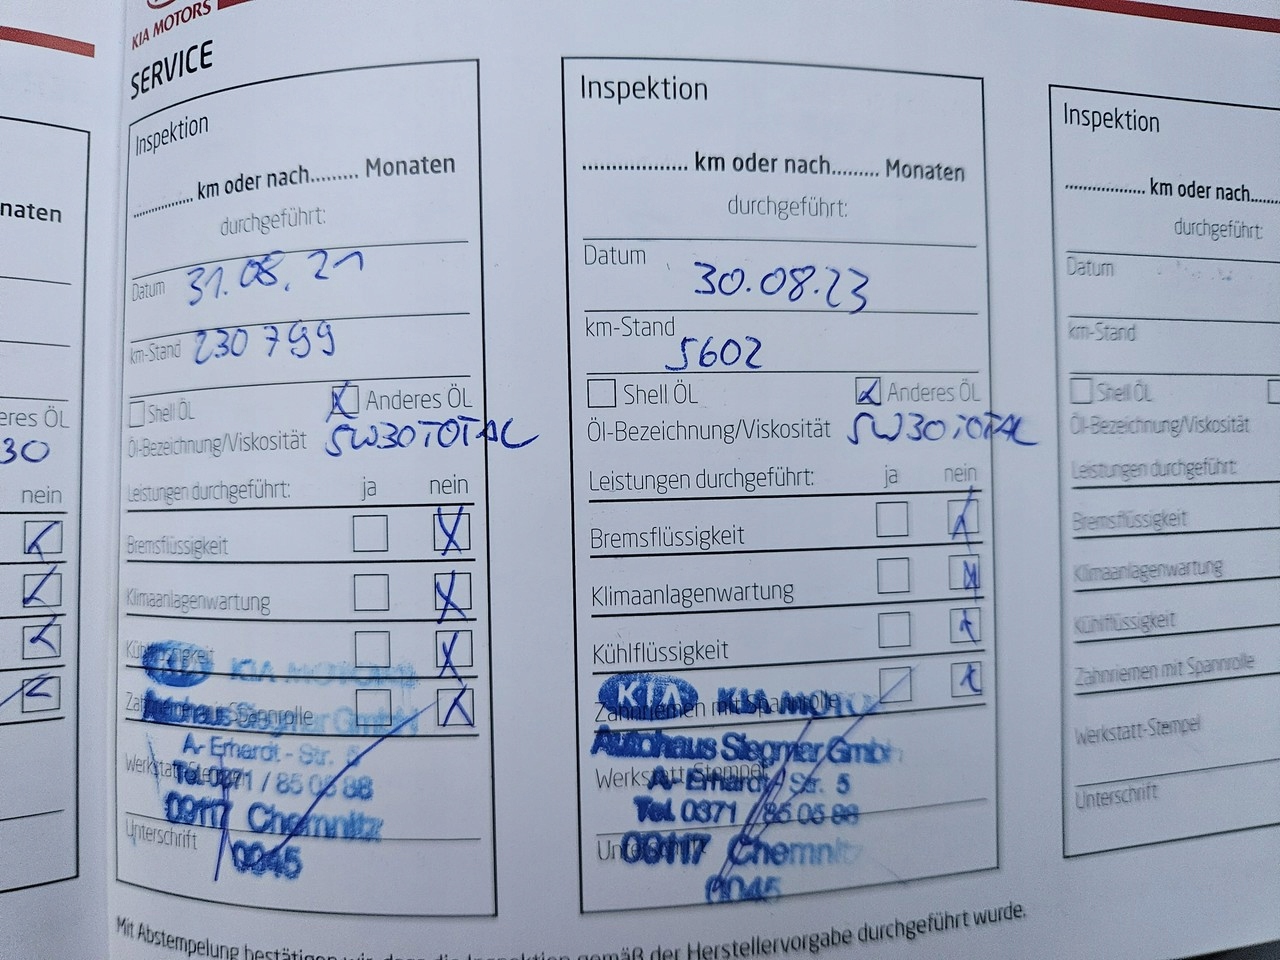 KIA MOTORS
SERVICE
naten
eres ÖL
30
nein
Inspektion
km oder nach......... Monaten
durchgeführt:
Datum 31.08.21
km-Stand 230 799
Shell ÖL Anderes ÖL
Öl-Bezeichnung/Viskosität 5W30 TOTAL
Leistungen durchgeführt: ja nein
Bremsflüssigkeit
Klimaanlagenwartung
Kühlflüssigkeit
KIA KIA MOTORS
Zahnriemen mit Spannrolle
Autohaus Siegmar GmbH
A.-Erhardt-Str. 5
Werkstatt-Stempel
Tel. 0371 / 85 05 88
09117 Chemnitz
Unterschrift
0045
Inspektion
.................. km oder nach......... Monaten
durchgeführt:
Datum 30.08.23
km-Stand 5602
Shell ÖL Anderes ÖL
Öl-Bezeichnung/Viskosität 5W30 TOTAL
Leistungen durchgeführt: ja nein
Bremsflüssigkeit
Klimaanlagenwartung
Kühlflüssigkeit
KIA KIA MOTO
Zahnriemen mit Spannrolle
Autohaus Siegmar Gmbh
Werkstatt-Stempel
A.-Erhardt-Str. 5
Tel. 0371 / 85 05 88
Unterschrift
09117 Chemnitz
0045
Inspektion
.................. km oder nach.......
durchgeführt:
Datum
km-Stand
Shell ÖL
Öl-Bezeichnung/Viskosität
Leistungen durchgeführt:
Bremsflüssigkeit
Klimaanlagenwartung
Kühlflüssigkeit
Zahnriemen mit Spannrolle
Werkstatt-Stempel
Unterschrift
Mit Abstempelung bestätigen wir, dass die Inspektion gemäß der Herstellervorgabe durchgeführt wurde.